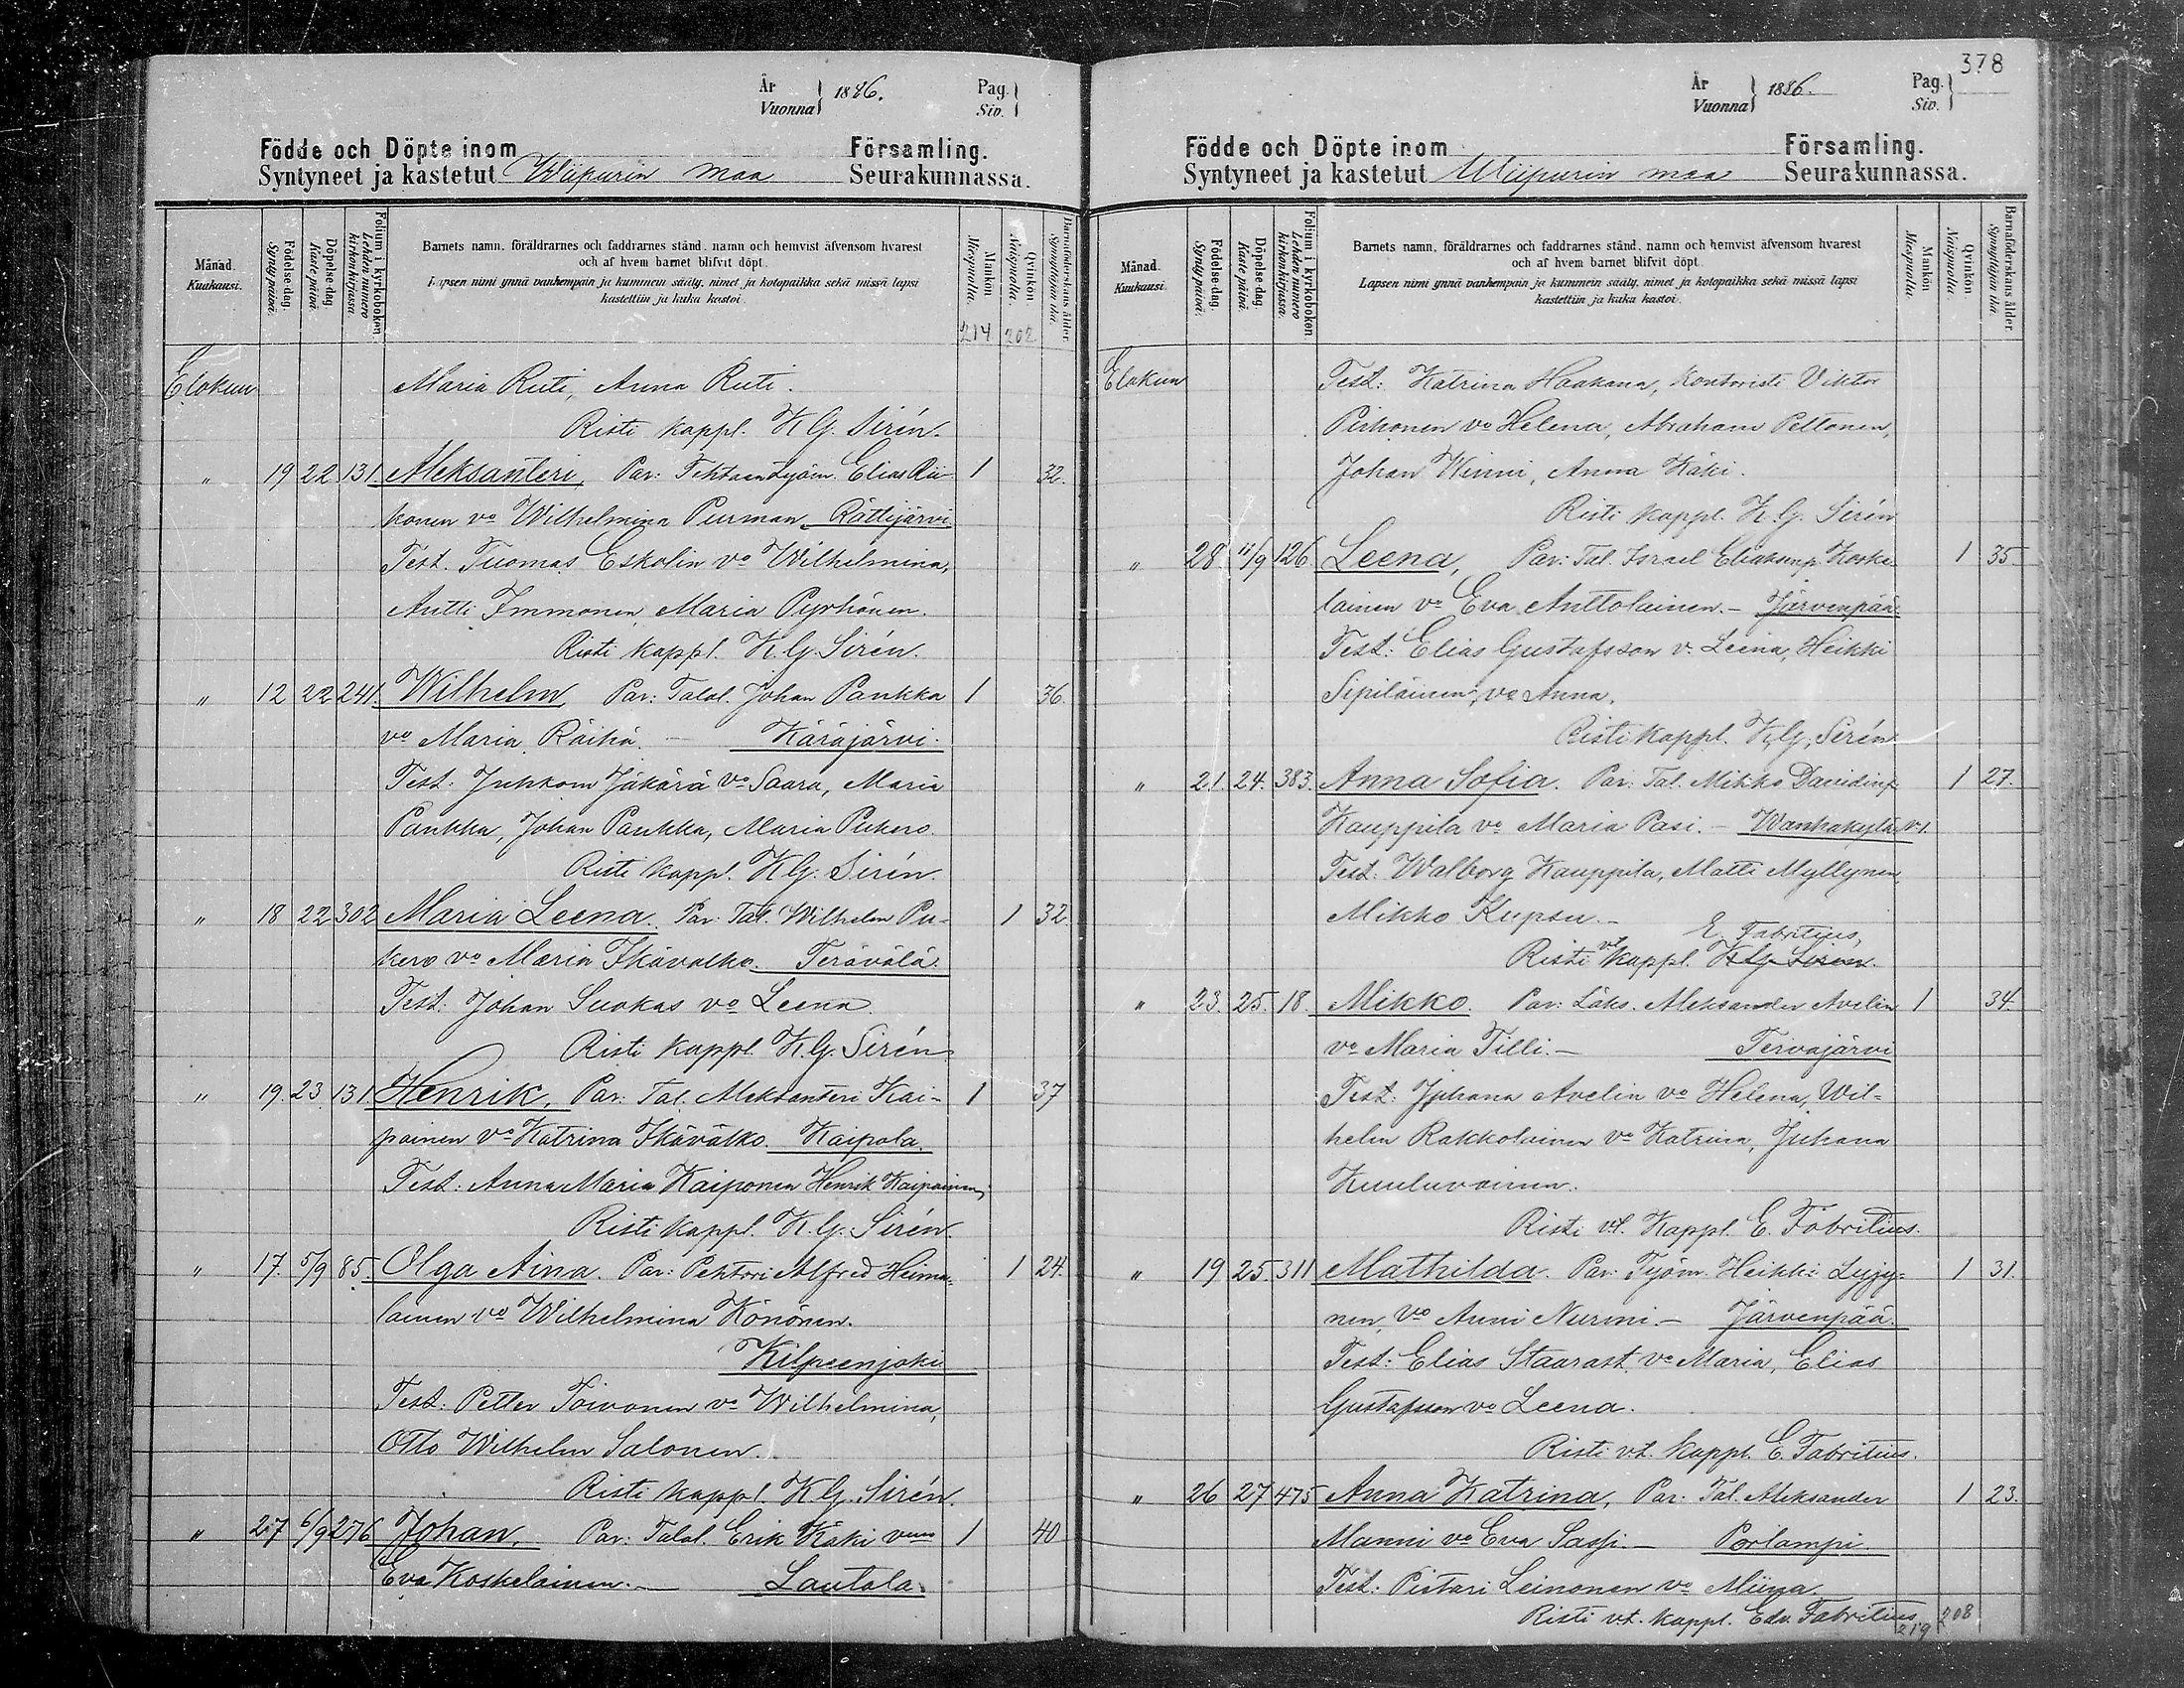 År
Vuonna } 1886.
Pag.
Siv.
Födde och Döpte inom Församling.
Syntyneet ja kastetut Wiipurin maa Seurakunnassa.
Månad.
Kuukausi.
Födelse-dag.
Syntypäivä.
Döpelse-dag.
Kaste päivä.
Folium i kyrkoboken.
Lehden numero kirkonkirjassa.
Barnets namn, föräldrarnes och faddrarnes stånd, namn och hemvist äfvensom hvarest
och af hvem barnet blifvit döpt.
Lapsen nimi ynnä vanhempain ja kummein sääty, nimet ja kotopaikka sekä missä lapsi
kastettiin ja kuka kastoi.
Mankön
Miespuolia.
Qvinkön
Naispuolia.
Barnaföderskans ålder.
Synnyttäjän ikä.
214 202
Elokuu Maria Ruti, Anna Ruti.
Risti kappl. K G. Sirén.
" 19 22 131 Aleksanteri, Par: Tehtaantyöm. Elias Rii- 1 32.
konen vo Wilhelmina Purman. Rättijärvi
Test. Tuomas Eskolin vo Wilhelmina,
Antti Immonen, Maria Pyrhönen.
Risti kappl. K. G. Sirén.
" 12 22 241. Wilhelm, Par: Talol. Johan Pankka 1 36.
vo Maria Räihä. — Käräjärvi.
Test: Juhkom Jäkärä vo Saara, Maria
Pankka, Johan Pankka, Maria Pukero.
Risti kappl. K G. Sirén.
" 18 22 302 Maria Leena. Par: Tal. Wilhelm Pu- 1 32
kero vo Maria Ikävalko. Terävälä.
Test: Johan Suokas vo Leena.
Risti kappl. K. G. Sirén
" 19. 23 131 Henrik, Par: Tal. Aleksanteri Kai- 1 37
painen vo Katrina Ikävälko. Kaipola.
Test: Anna Maria Kaiponen Henrik Kaipainen,
Risti kappl. K. G. Sirén.
" 17. 5/9 85. Olga Aina. Par: Pehtori Alfred Heima- 1 24.
lainen vo Wilhelmina Könönen.
Kilpeenjoki
Test: Petter Toivonen vo Wilhelmina,
Otto Wilhelm Salonen.
Risti kappl. K G. Sirén.
" 27 6/9 276 Johan. Par: Talol. Erik Käki vmo 1 40
Eva Koskelainen. — Lautala.
378
År
Vuonna } 1886.
Pag.
Siv.
Födde och Döpte inom Församling.
Syntyneet ja kastetut Wiipurin maa Seurakunnassa.
Månad.
Kuukausi.
Födelse-dag.
Syntypäivä.
Döpelse-dag.
Kaste päivä.
Folium i kyrkoboken.
Lehden numero kirkonkirjassa.
Barnets namn, föräldrarnes och faddrarnes stånd, namn och hemvist äfvensom hvarest
och af hvem barnet blifvit döpt.
Lapsen nimi ynnä vanhempain ja kummein sääty, nimet ja kotopaikka sekä missä lapsi
kastettiin ja kuka kastoi.
Mankön
Miespuolia.
Qvinkön
Naispuolia.
Barnaföderskans ålder.
Synnyttäjän ikä.
Elokuu Test: Katrina Haakana, Kontoristi Viktor
Pirhonen vo Helena, Abraham Peltonen,
Johan Winni, Anna Käki.
Risti kappl. K. G. Sirén
" 28 11/9 126 Leena, Par: Tal. Israel Eliaksenp. Koske- 1 35
lainen vo Eva Anttolainen. — Järvenpää.
Test: Elias Gustafsson v. Leena, Heikki
Sipiläinen vo Anna.
Risti kappl. K. G. Sirén
" 21. 24. 383. Anna Sofia. Par: Tal. Mikko Davidinp. 1 27.
Kauppila vo Maria Pasi. — Wanhakylä
Test: Walborg Kauppila, Matti Myllynen,
Mikko Kupsu. —
E. Fabritius,
Risti vt. kappl. K G. Sirén.
" 23. 25. 18. Mikko. Par: Läks. Aleksander Avelin 1 34.
vo Maria Tilli. — Tervajärvi
Test: Juhana Avelin vo Helena, Wil-
helm Rakkolainen vo Katrina, Juhana
Kuuluvainen.
Risti vt. Kappl. E. Fabritius.
" 19 25. 311 Mathilda. Par: Työm. Heikki Lyyy- 1 31.
nen, vo Anni Nurmi. — Järvenpää.
Test: Elias Staarast vo Maria, Elias
Gustafsson vo Leena.
Risti vt. kappl. E. Fabritius.
" 26 27 475 Anna Katrina, Par: Tal. Aleksander 1 23.
Manni vo Eva Sassi. — Porlampi
Test: Pietari Leinonen vo Miina.
Risti vt. kappl. Edv. Fabritius.
219 208